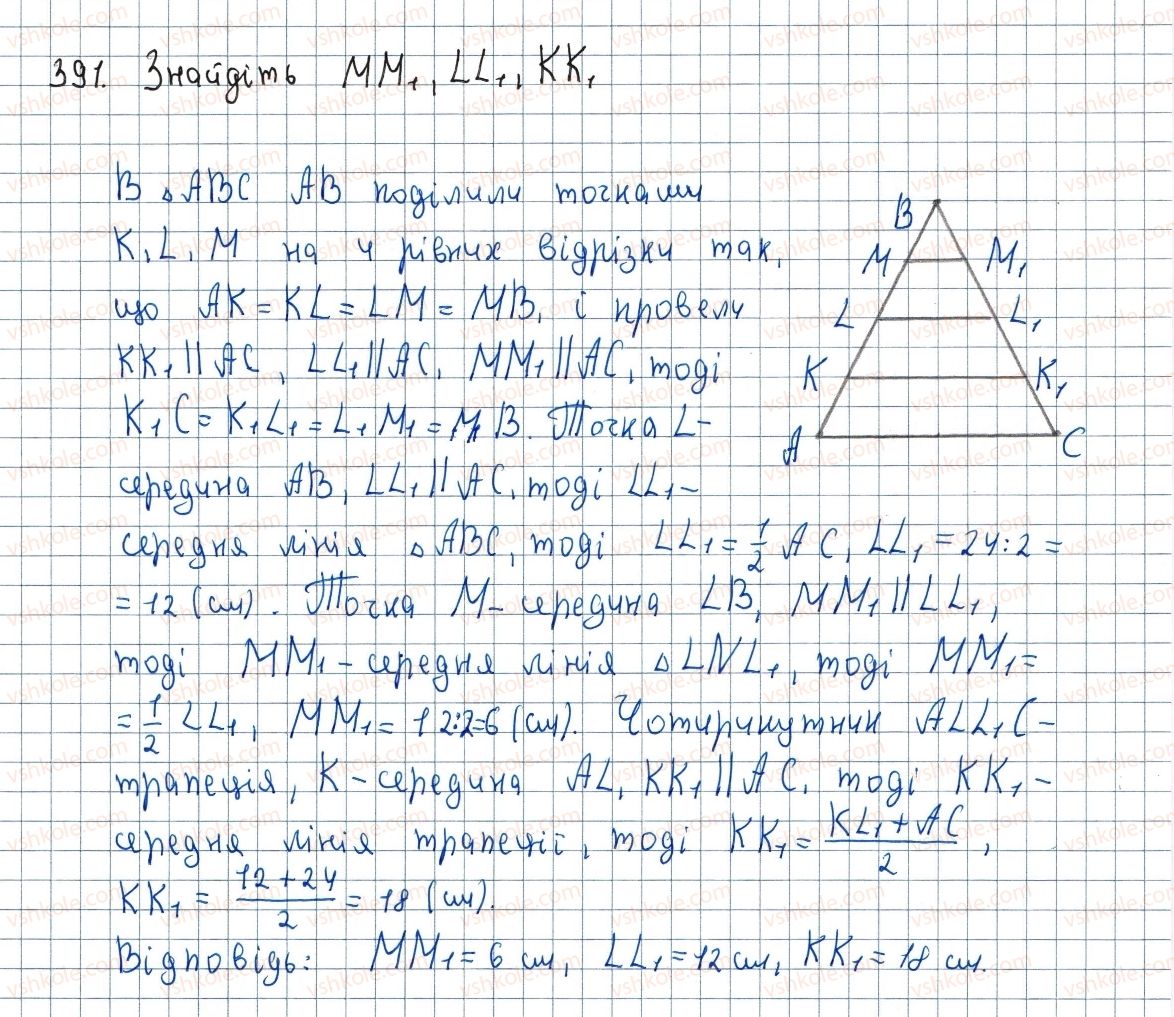 391. Знайдіть MM₁, LL₁, KK₁
В △ABC AB поділили точками
K, L, M на 4 рівних відрізки так,
що AK = KL = LM = MB, і провели
KK₁ || AC, LL₁ || AC, MM₁ || AC, тоді
K₁C = K₁L₁ = L₁M₁ = M₁B. Точка L-
середина AB, LL₁ || AC, тоді LL₁-
середня лінія △ABC, тоді LL₁ = 1/2 AC, LL₁ = 24:2 =
= 12 (см). Точка M- середина LB, MM₁ || LL₁,
тоді MM₁ - середня лінія △LNL₁, тоді MM₁ =
= 1/2 LL₁, MM₁ = 12:2=6 (см). Чотирикутник ALL₁C-
трапеція, K-середина AL, KK₁ || AC, тоді KK₁-
середня лінія трапеції, тоді KK₁ = (KL₁ + AC)/2,
KK₁ = (12 + 24)/2 = 18 (см).
Відповідь: MM₁ = 6 см, LL₁ = 12 см, KK₁ = 18 см.
B
M M₁
L L₁
K K₁
A C
vshkole.com